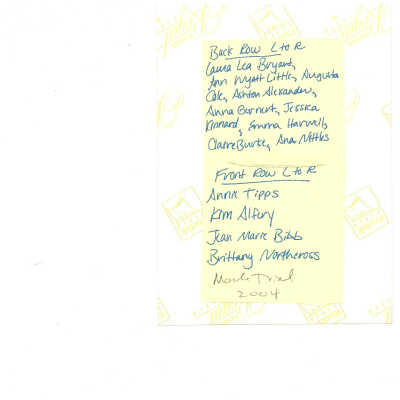 Back Row L to R
Laura Lea Bryant,
Ann Wyatt Little, Augusta
Cole, Ashton Alexander,
Anna Burnert, Jessica
Kinnard, Emma Harwell,
Claire Burke, Ana Nettles
Front Row L to R
Annie Tipps
Kim Alfery
Jean Marie Bibb
Brittany Northcross
Mock Trial
2004